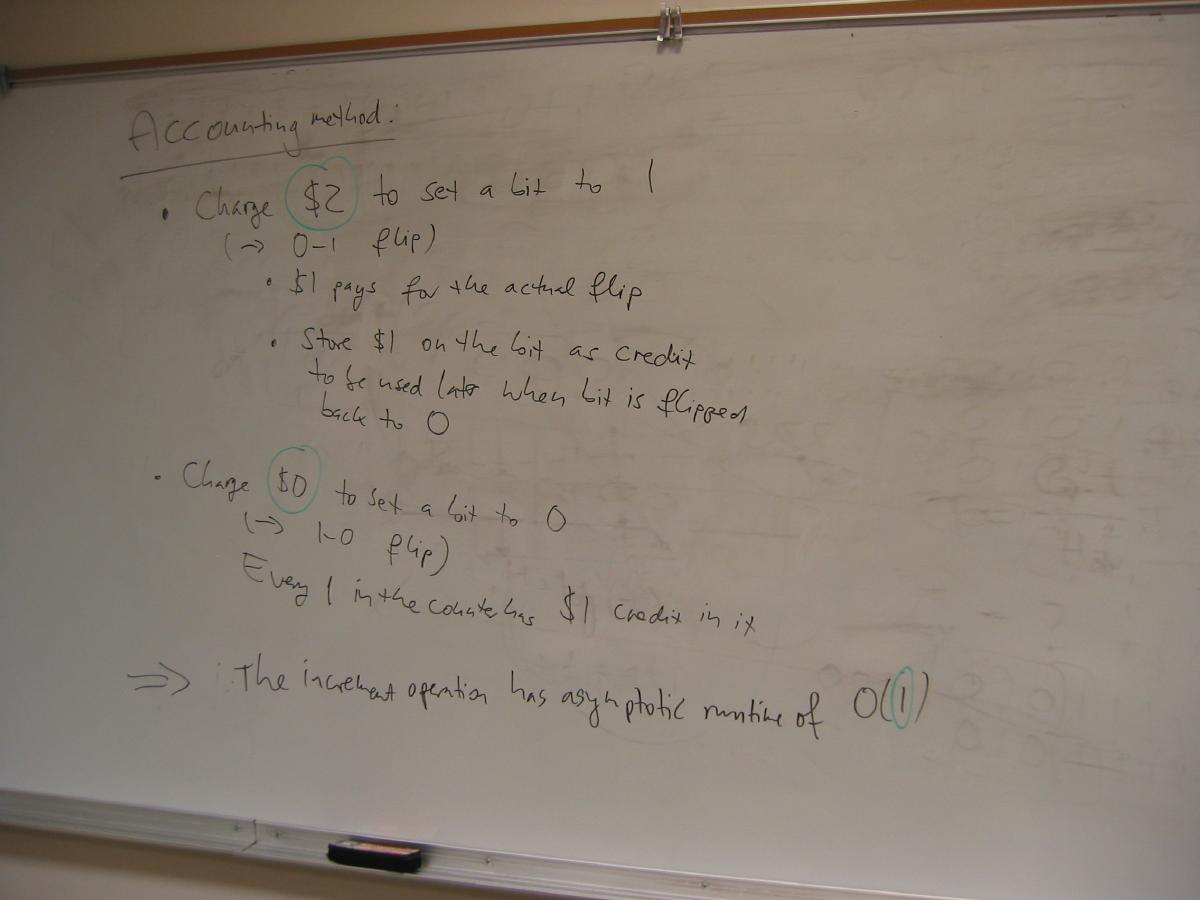 Accounting method:
• Charge $2 to set a bit to 1
(→ 0-1 flip)
• $1 pays for the actual flip
• Store $1 on the bit as credit
to be used later when bit is flipped
back to 0
• Charge $0 to set a bit to 0
(→ 1-0 flip)
Every 1 in the counter has $1 credit in it
⇒ The increment operation has asymptotic runtime of O(1)